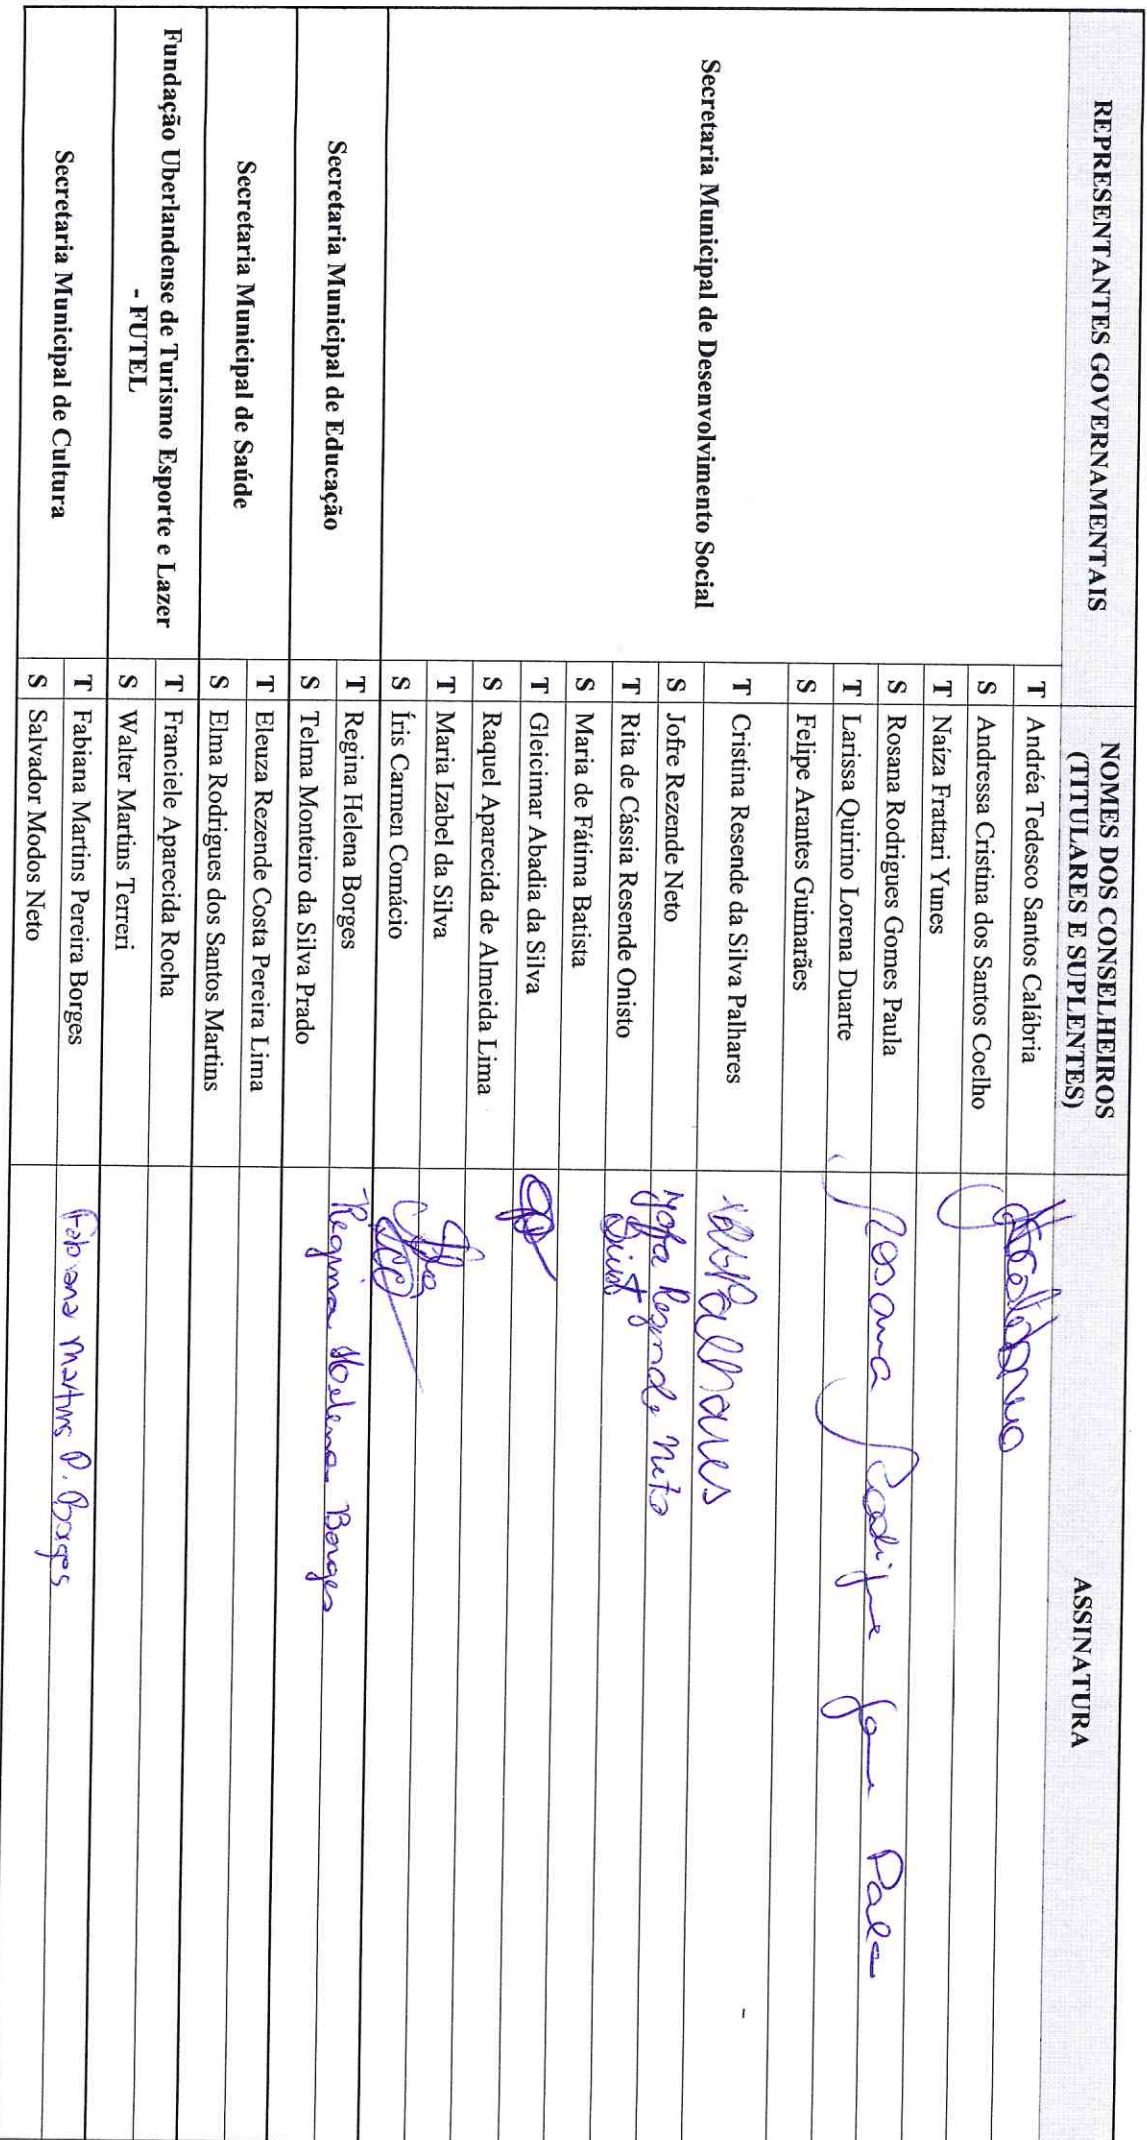 REPRESENTANTES GOVERNAMENTAIS
NOMES DOS CONSELHEIROS
(TITULARES E SUPLENTES)
ASSINATURA
Secretaria Municipal de Desenvolvimento Social
T Andréa Tedesco Santos Calábria
S Andressa Cristina dos Santos Coelho
T Naíza Frattari Yunes
S Rosana Rodrigues Gomes Paula Rosana Rodrigues Gomes Paula
T Larissa Quirino Lorena Duarte
S Felipe Arantes Guimarães
T Cristina Resende da Silva Palhares Palhares
S Jofre Rezende Neto Jofre Rezende Neto
T Rita de Cássia Resende Onisto
S Maria de Fátima Batista
T Gleicimar Abadia da Silva
S Raquel Aparecida de Almeida Lima
T Maria Izabel da Silva
S Íris Carmen Comácio
Secretaria Municipal de Educação
T Regina Helena Borges Regina Helena Borges
S Telma Monteiro da Silva Prado
Secretaria Municipal de Saúde
T Eleuza Rezende Costa Pereira Lima
S Elma Rodrigues dos Santos Martins
Fundação Uberlandense de Turismo Esporte e Lazer
- FUTEL
T Franciele Aparecida Rocha
S Walter Martins Terreri
Secretaria Municipal de Cultura
T Fabiana Martins Pereira Borges Fabiana Martins P. Borges
S Salvador Modos Neto